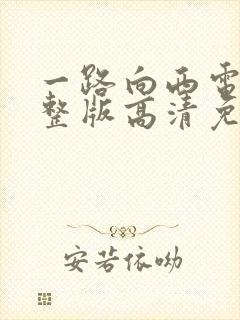 一路向西电
整版高清免
安若依呦